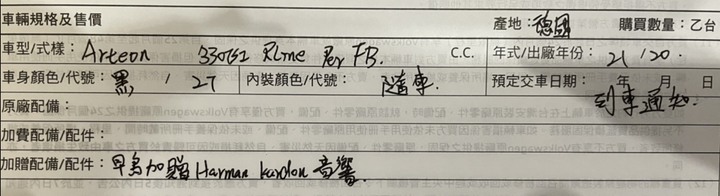 車輛規格及售價 產地：德國 購買數量：乙台
車型/式樣：Arteon 330TSI RLine Per FB. C.C. 年式/出廠年份：21/20.
車身顏色/代號：黑 / 27 內裝顏色/代號：隨車. 預定交車日期： 年 月 日
到車通知.
原廠配備：
加費配備/配件：
加贈配備/配件：早鳥加贈Harman kardon音響.